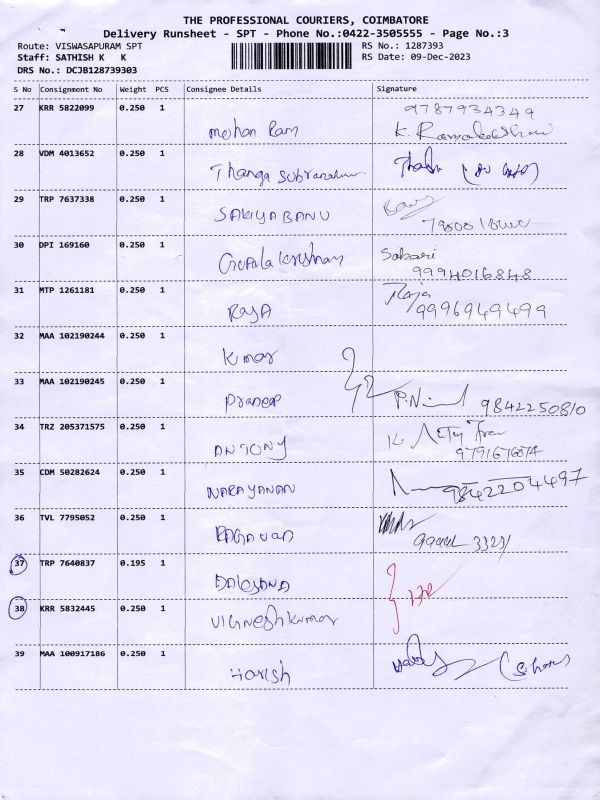 THE PROFESSIONAL COURIERS, COIMBATORE
Delivery Runsheet - SPT - Phone No.:0422-3505555 - Page No.:3
Route: VISWASAPURAM SPT RS No.: 1287393
Staff: SATHISH K K RS Date: 09-Dec-2023
DRS No.: DCJB128739303
S No Consignment No Weight PCS Consignee Details Signature
27 KRR 5822099 0.250 1 9787934349
mohan Ram K.
28 VDM 4013652 0.250 1
Thanga
29 TRP 7637338 0.250 1
SAKIYA BANU
30 DPI 169160 0.250 1 Sabari
Gopala krishnan 9994016848
31 MTP 1261181 0.250 1 Raja
RAJA 9996949499
32 MAA 102190244 0.250 1
Kumar
33 MAA 102190245 0.250 1
Pradeep 9842250810
34 TRZ 205371575 0.250 1 K.
ANTONY
35 CDM 50282624 0.250 1
NARAYANAN 9842204497
36 TVL 7795052 0.250 1
RAGAVAN
37 TRP 7640837 0.195 1
38 KRR 5832445 0.250 1
VIGNESHkumar
39 MAA 100917186 0.250 1
Harish